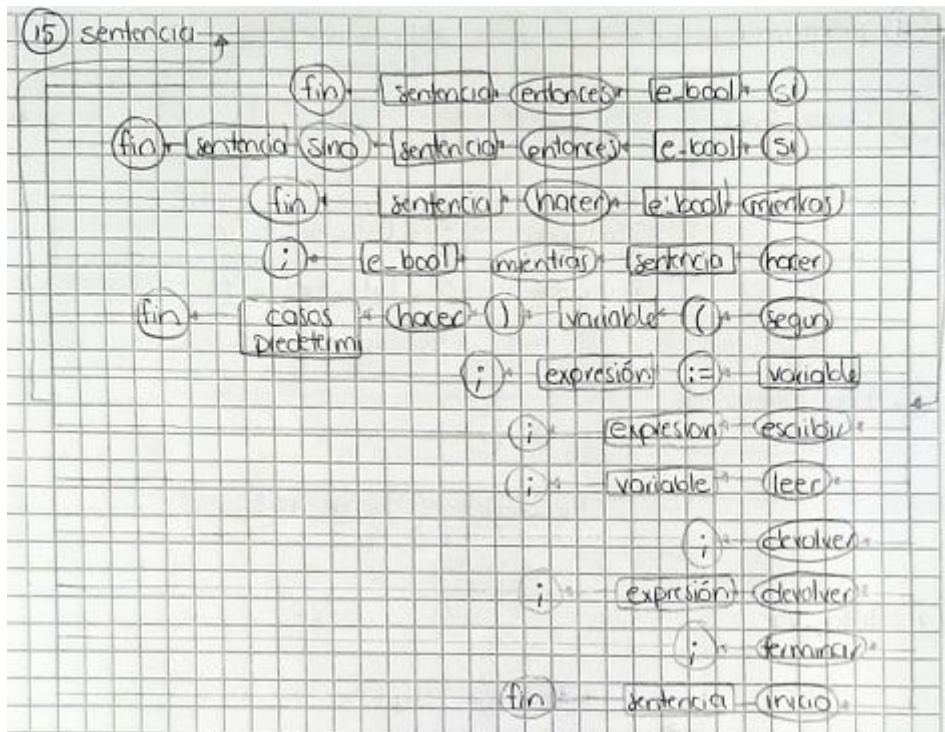 15 sentencia
fin sentencia entonces e_bool si
fin sentencia sino sentencia entonces e_bool si
fin sentencia hacer e_bool mientras
; e_bool mientras sentencia hacer
fin casos hacer ) variable ( segun
predetermi
; expresión := variable
; expresion escribir
; variable leer
; devolver
; expresión devolver
; terminar
fin sentencia inicio